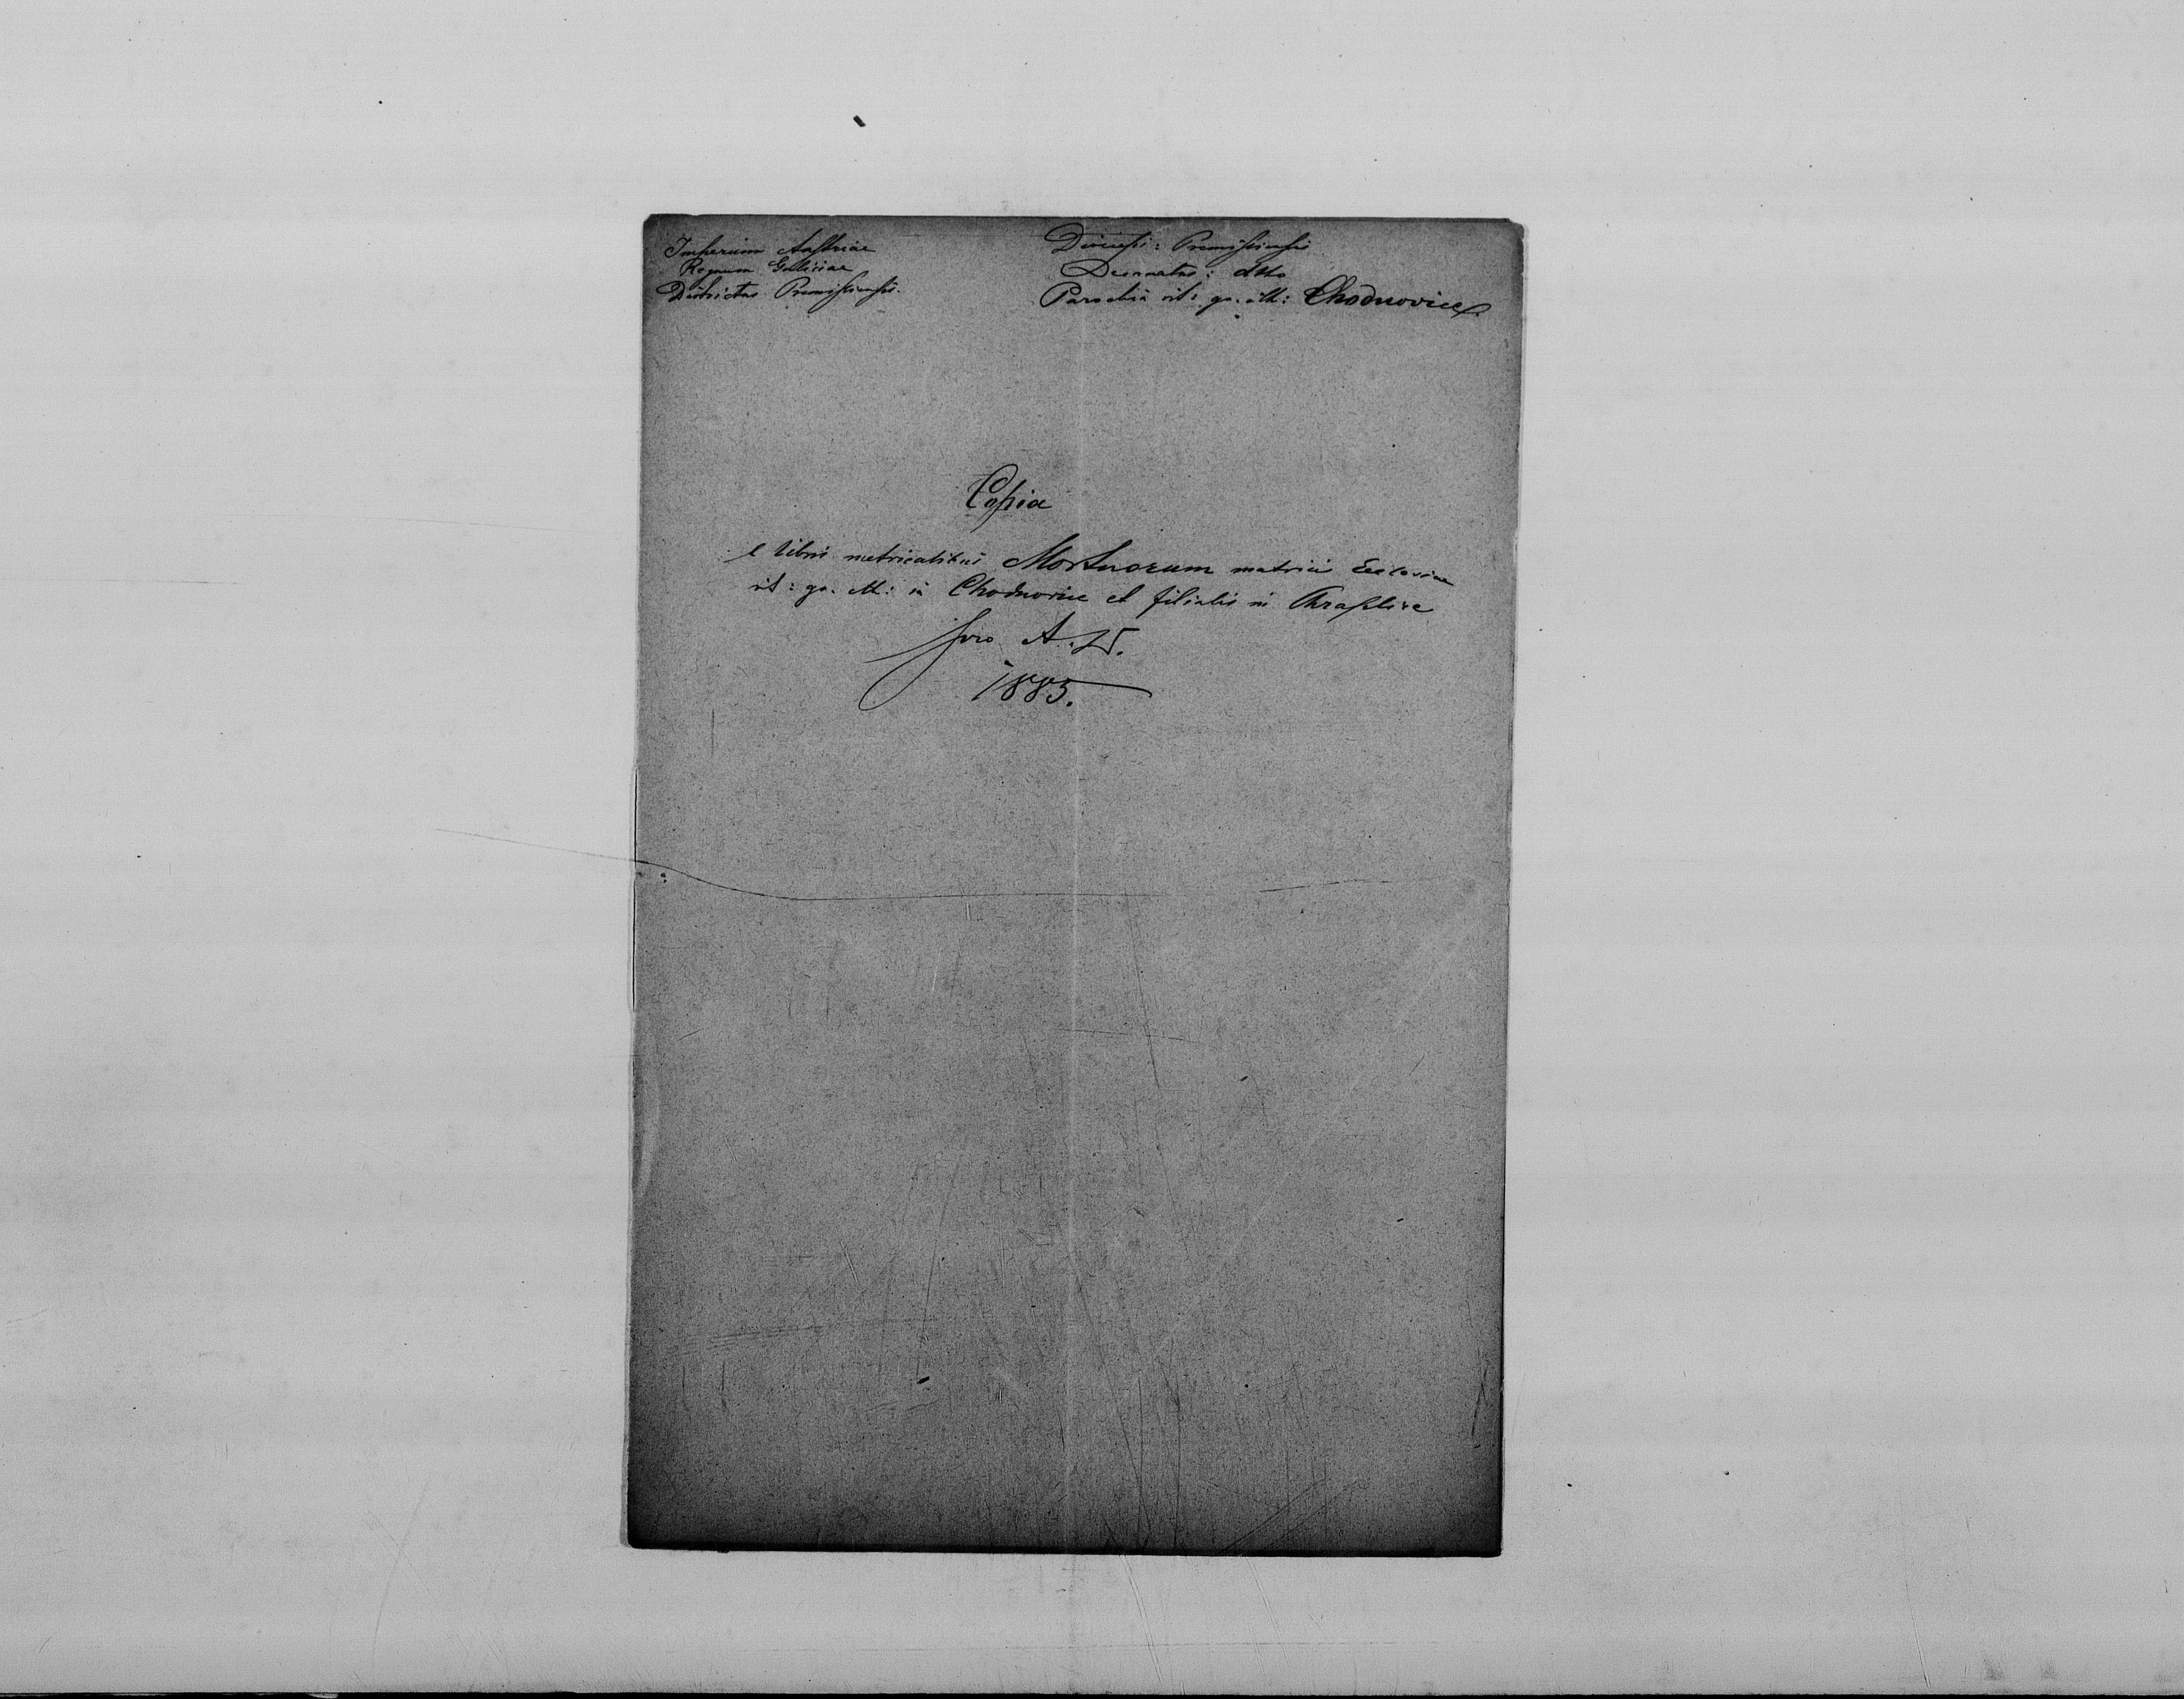 Imperium Austriae
Regnum Galiciae
Districtus Premisliensis.
Diocesis: Premisliensis
Decanatus: dtto
Parochia rit: gr. cth: Chodnovice
Copia
e libris metricalibus Mortuorum matricis Ecclesiae
rit: gr. cth: in Chodnovice et filialis in Chraplice
pro A. D.
1885.